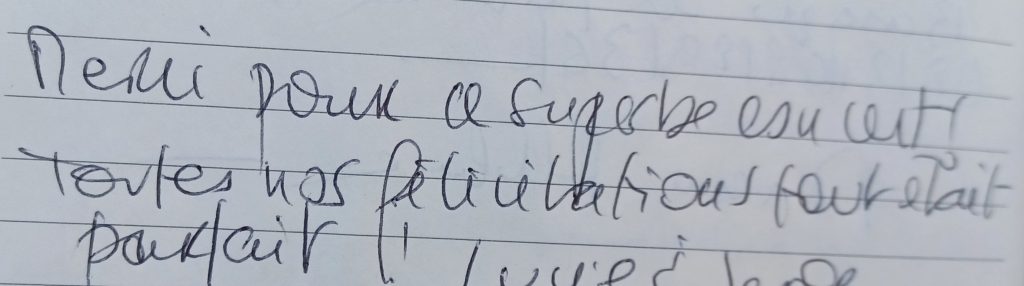 Merci pour ce superbe concert!
Toutes nos félicitations tout était
parfait !!